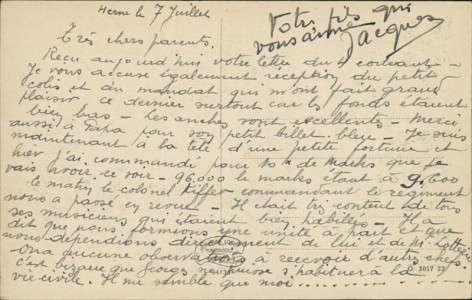 Herne le 7 Juillet
Votre fils qui
vous aime
Jacques
Très chers parents.
Reçu aujourd'hui votre lettre du 4 courant -
Je vous accuse également réception du petit
colis et du mandat qui m'ont fait grand
plaisir ce dernier surtout car les fonds étaient
bien bas - Les anchois sont excellents - Merci
aussi à Papa pour son petit billet bleu - Je suis
maintenant à la tête d'une petite fortune et
hier j'ai commandé pour 10 de Marks que je
vais avoir ce soir - 96.000 le marks étant à 9,600
le matin le colonel commandant le régiment
nous a passé en revue - Il était très content de tous
ses musiciens qui étaient bien habillés - Il a
dit que nous formions une unité à part et que
nous dépendions directement de lui et de Mr
aucune observation à recevoir d'autres chefs
c'est bizarre que Georges ne puisse s'habituer à la
vie civile. Il me semble que moi
O 3017 22